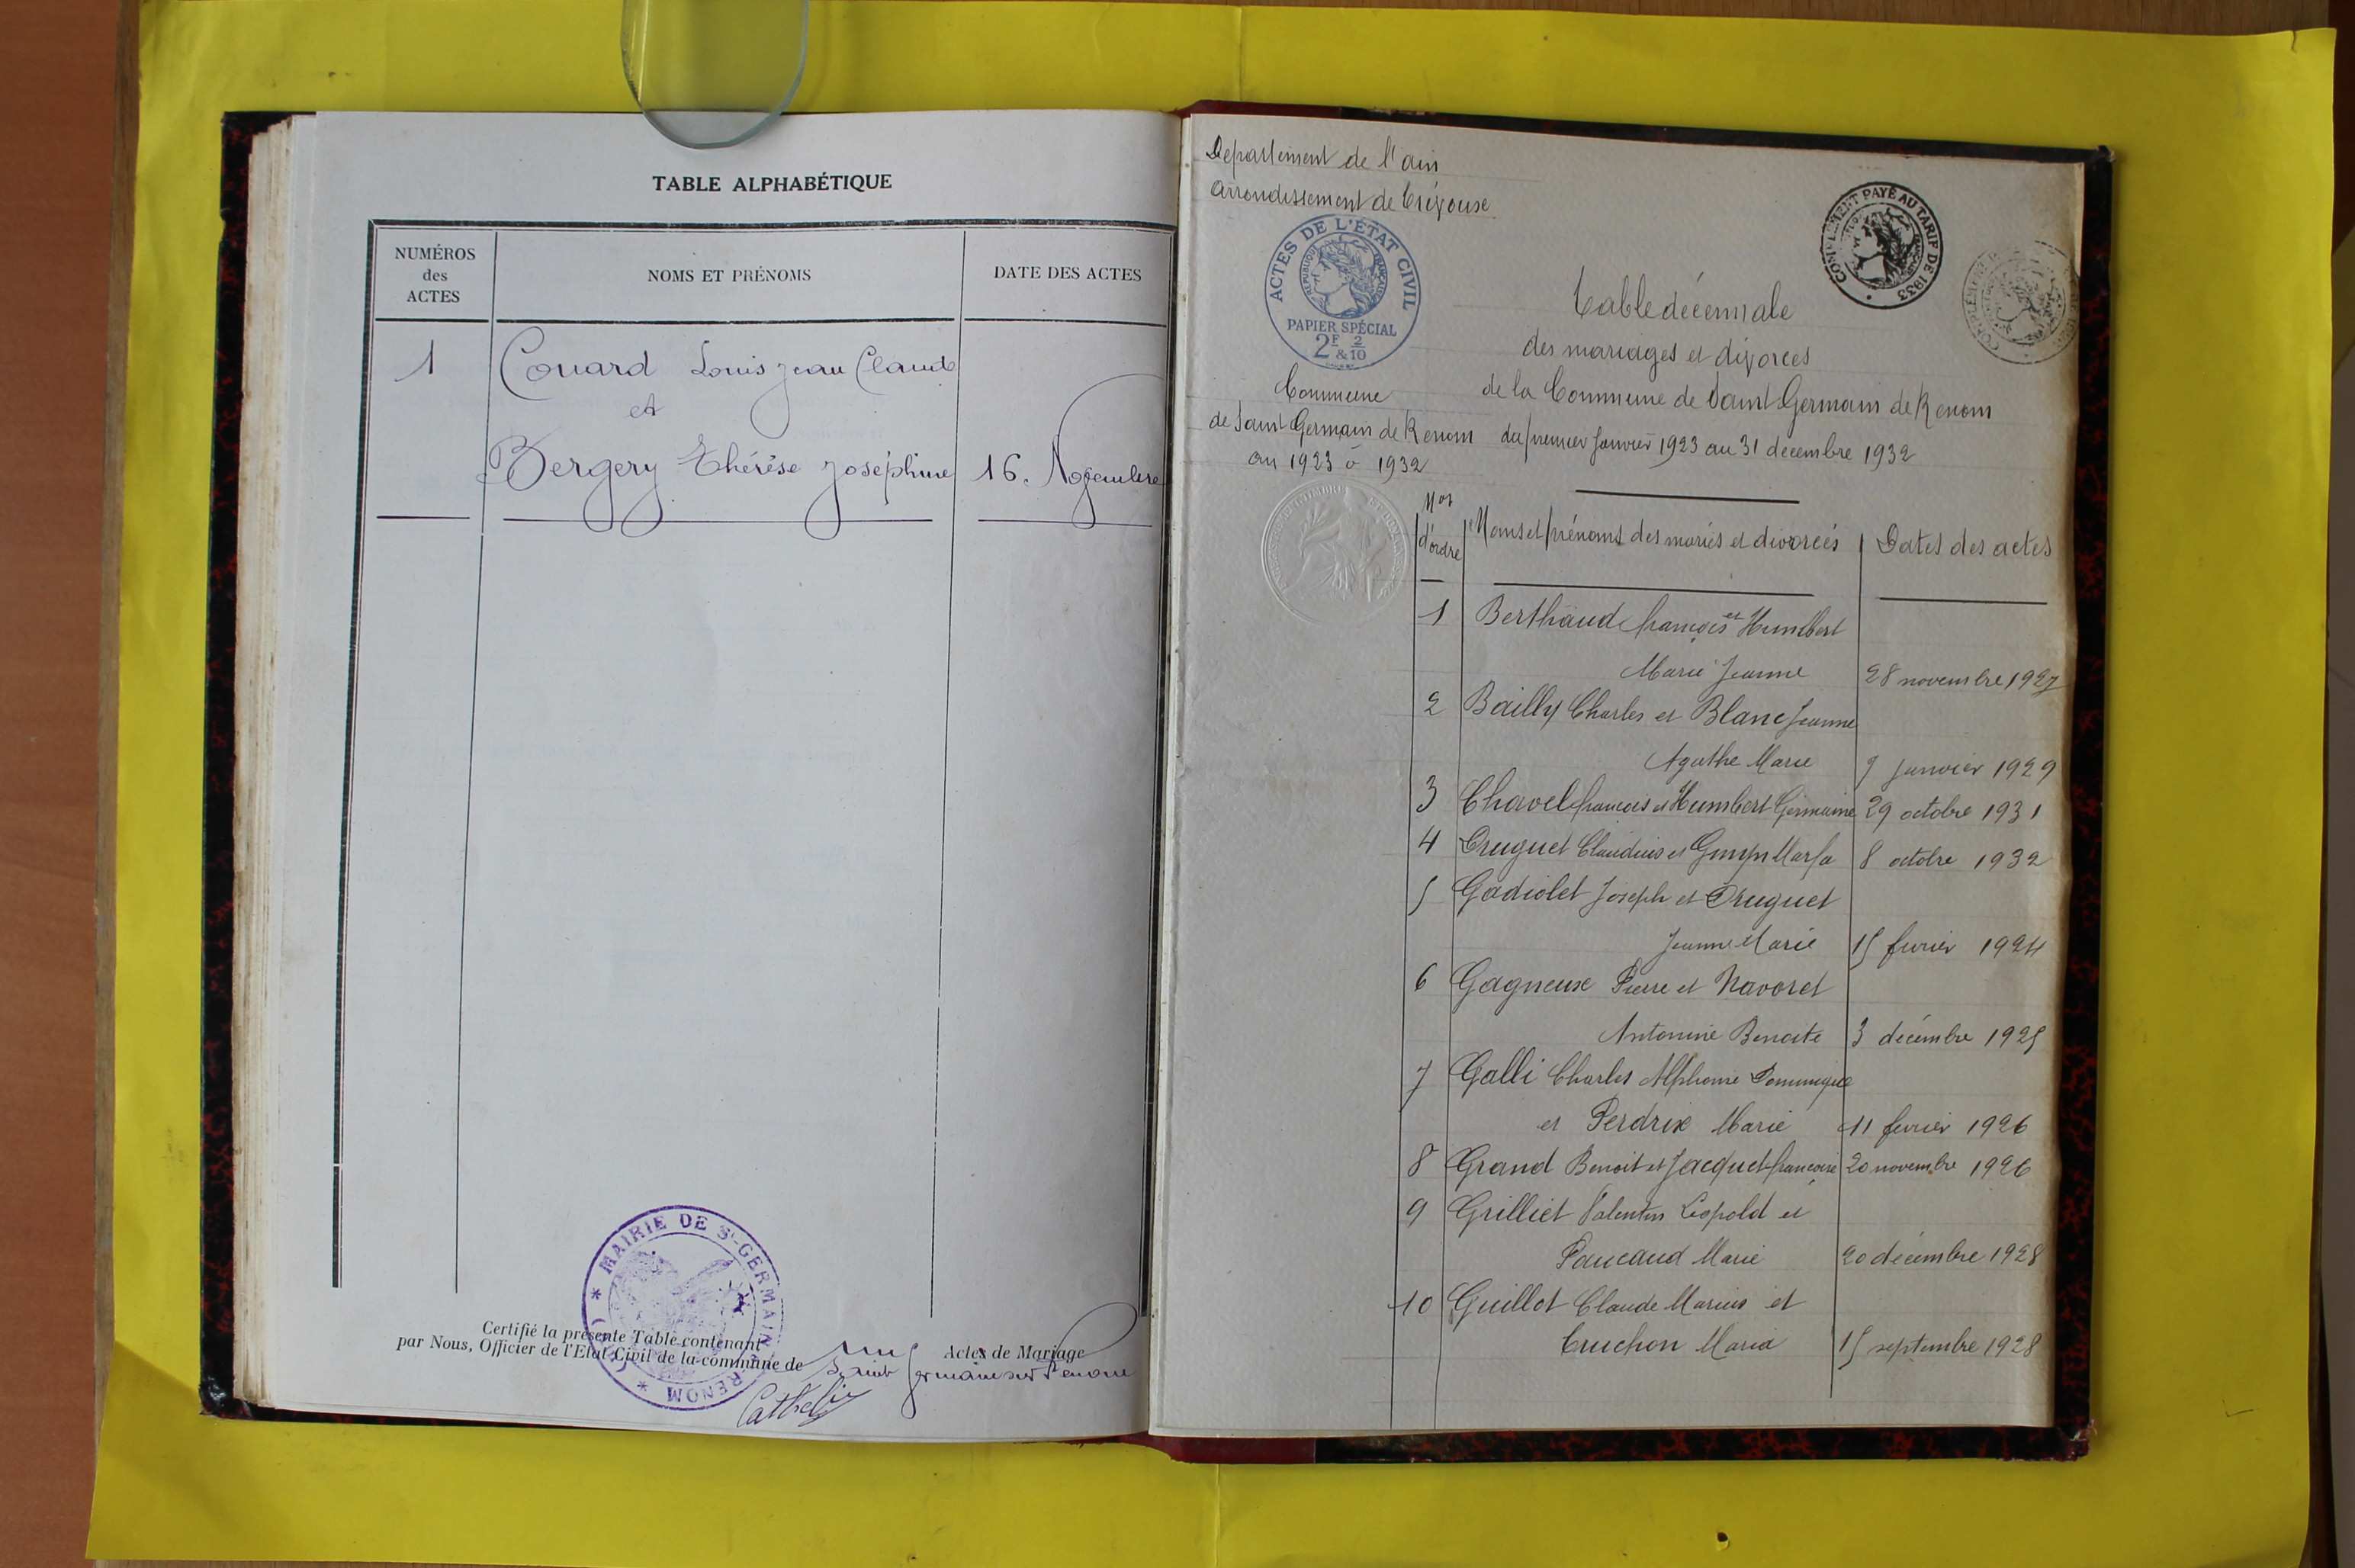 TABLE ALPHABÉTIQUE
NUMÉROS
des
ACTES
NOMS ET PRÉNOMS
DATE DES ACTES
1 Couard Louis Jean Claude
et
Bergery Thérèse Joséphine 16. Novembre
MAIRIE DE St-GERMAIN RENOM
Certifié la présente Table contenant un Actes de Mariage
par Nous, Officier de l'Etat Civil de la commune de Saint Germain sur Renom
Département de l'ain
Arrondissement de Trévoux
ACTES DE L'ÉTAT CIVIL
RÉPUBLIQUE FRANÇAISE
PAPIER SPÉCIAL
2F 2
& 10
COMPLÉMENT PAYÉ AU TARIF DE 1933
Commune
de Saint Germain de Renom
an 1923 à 1932
Table décennale
des mariages et divorces
de la Commune de Saint Germain de Renom
du premier Janvier 1923 au 31 décembre 1932
Nos
d'ordre
Noms et prénoms des mariés et divorcés
Dates des actes
1 Berthaud françois et Humbert
Marie Jeanne 28 novembre 1927
2 Bailly Charles et Blanc Jeanne
Agathe Marie 9 janvier 1929
3 Chavel françois et Humbert Germaine 29 octobre 1931
4 Druguet Claudius et Maria 8 octobre 1932
5 Gadiolet Joseph et Druguet
Jeanne Marie 15 fevrier 1924
6 Gagneux Pierre et Navoret
Antonine Benoite 3 décembre 1925
7 Galli Charles Alphonse Dominique
et Perdrix Marie 11 fevrier 1926
8 Grand Benoit et Jacquet françoise 20 novembre 1926
9 Grilliet Valentin Léopold et
Paucaud Marie 20 décembre 1928
10 Guillot Claude Marius et
Truchon Maria 15 septembre 1928